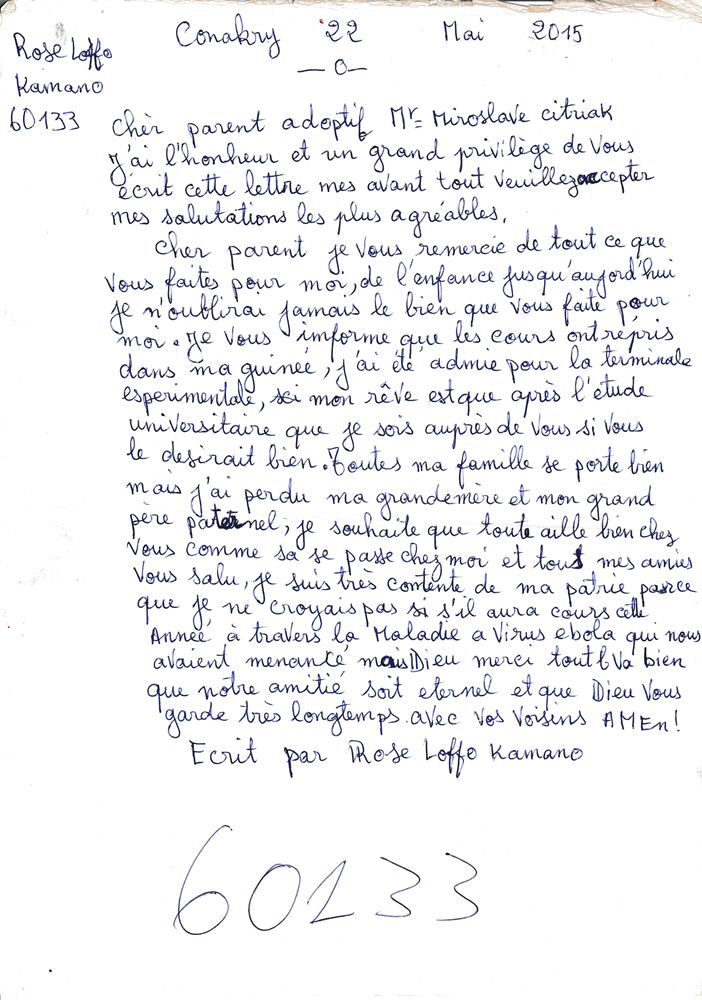 Conakry 22 Mai 2015
—O—
Rose Loffo
Kamano
60133
Chèr parent adoptif Mr= Miroslave citriak
J'ai l'honheur et un grand privilège de Vous
écrit cette lettre mes avant tout Veuillez accepter
mes salutations les plus agréables.
Cher parent je Vous remercie de tout ce que
Vous faites pour moi, de l'enfance jusqu'aujord'hui
je n'oublirai jamais le bien que Vous faite pour
moi. Je Vous imforme que les cours ont repris
dans ma guinée, j'ai été admie pour la terminale
esperimentale, si mon rêve est que après l'étude
universitaire que je sois auprès de Vous si Vous
le desirait bien. Toutes ma famille se porte bien
mais j'ai perdu ma grandemère et mon grand
père paternel, je souhaite que toute aille bien chez
Vous comme sa se passe chez moi et tout mes amies
Vous salu, je suis très contente de ma patrie parce
que je ne croyais pas si s'il aura cours cette
Année à travers la Maladie a Virus ebola qui nous
avaient menancé mais Dieu merci tout Va bien
que notre amitié soit eternel et que Dieu Vous
garde très longtemps avec Vos Voisins AMEn!
Ecrit par Rose Loffo Kamano
60133